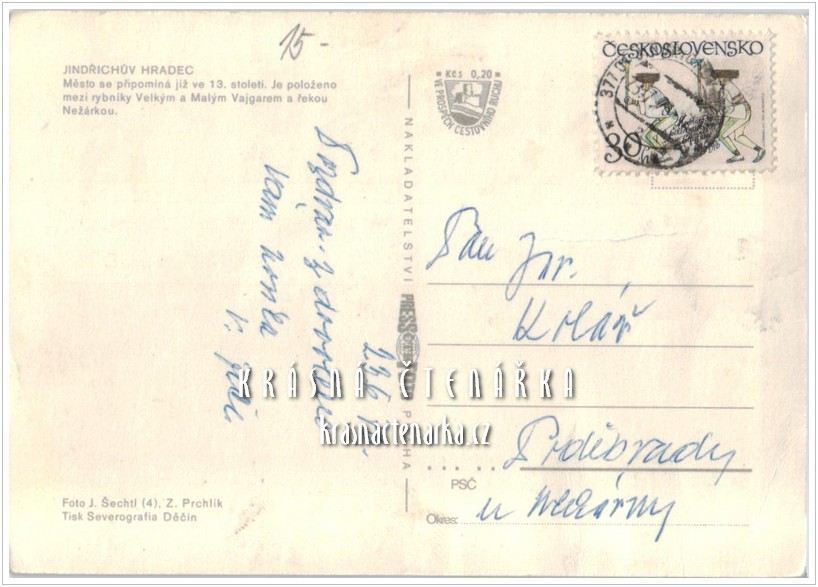 15-
JINDŘICHŮV HRADEC
Město se připomíná již ve 13. století. Je položeno
mezi rybníky Velkým a Malým Vajgarem a řekou
Nežárkou.
Kčs 0,20
VE PROSPĚCH CESTOVNÍHO RUCHU
ČESKOSLOVENSKO
377
30
NAKLADATELSTVÍ PRESSFOTO PRAHA
Pozdrav z dovolené
vám
Pan Jar.
Kolář
Poděbrady
u
PSČ
Okres:
KRÁSNÁ ČTENÁŘKA
krasnactenarka.cz
Foto J. Šechtl (4), Z. Prchlík
Tisk Severografia Děčín